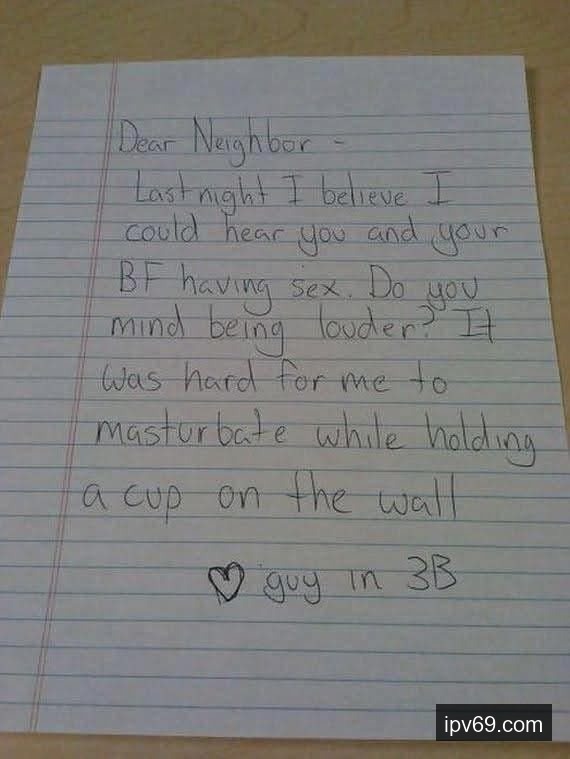 Dear Neighbor -
Last night I believe I
could hear you and your
BF having sex. Do you
mind being louder? It
was hard for me to
masturbate while holding
a cup on the wall
♡ guy in 3B
ipv69.com